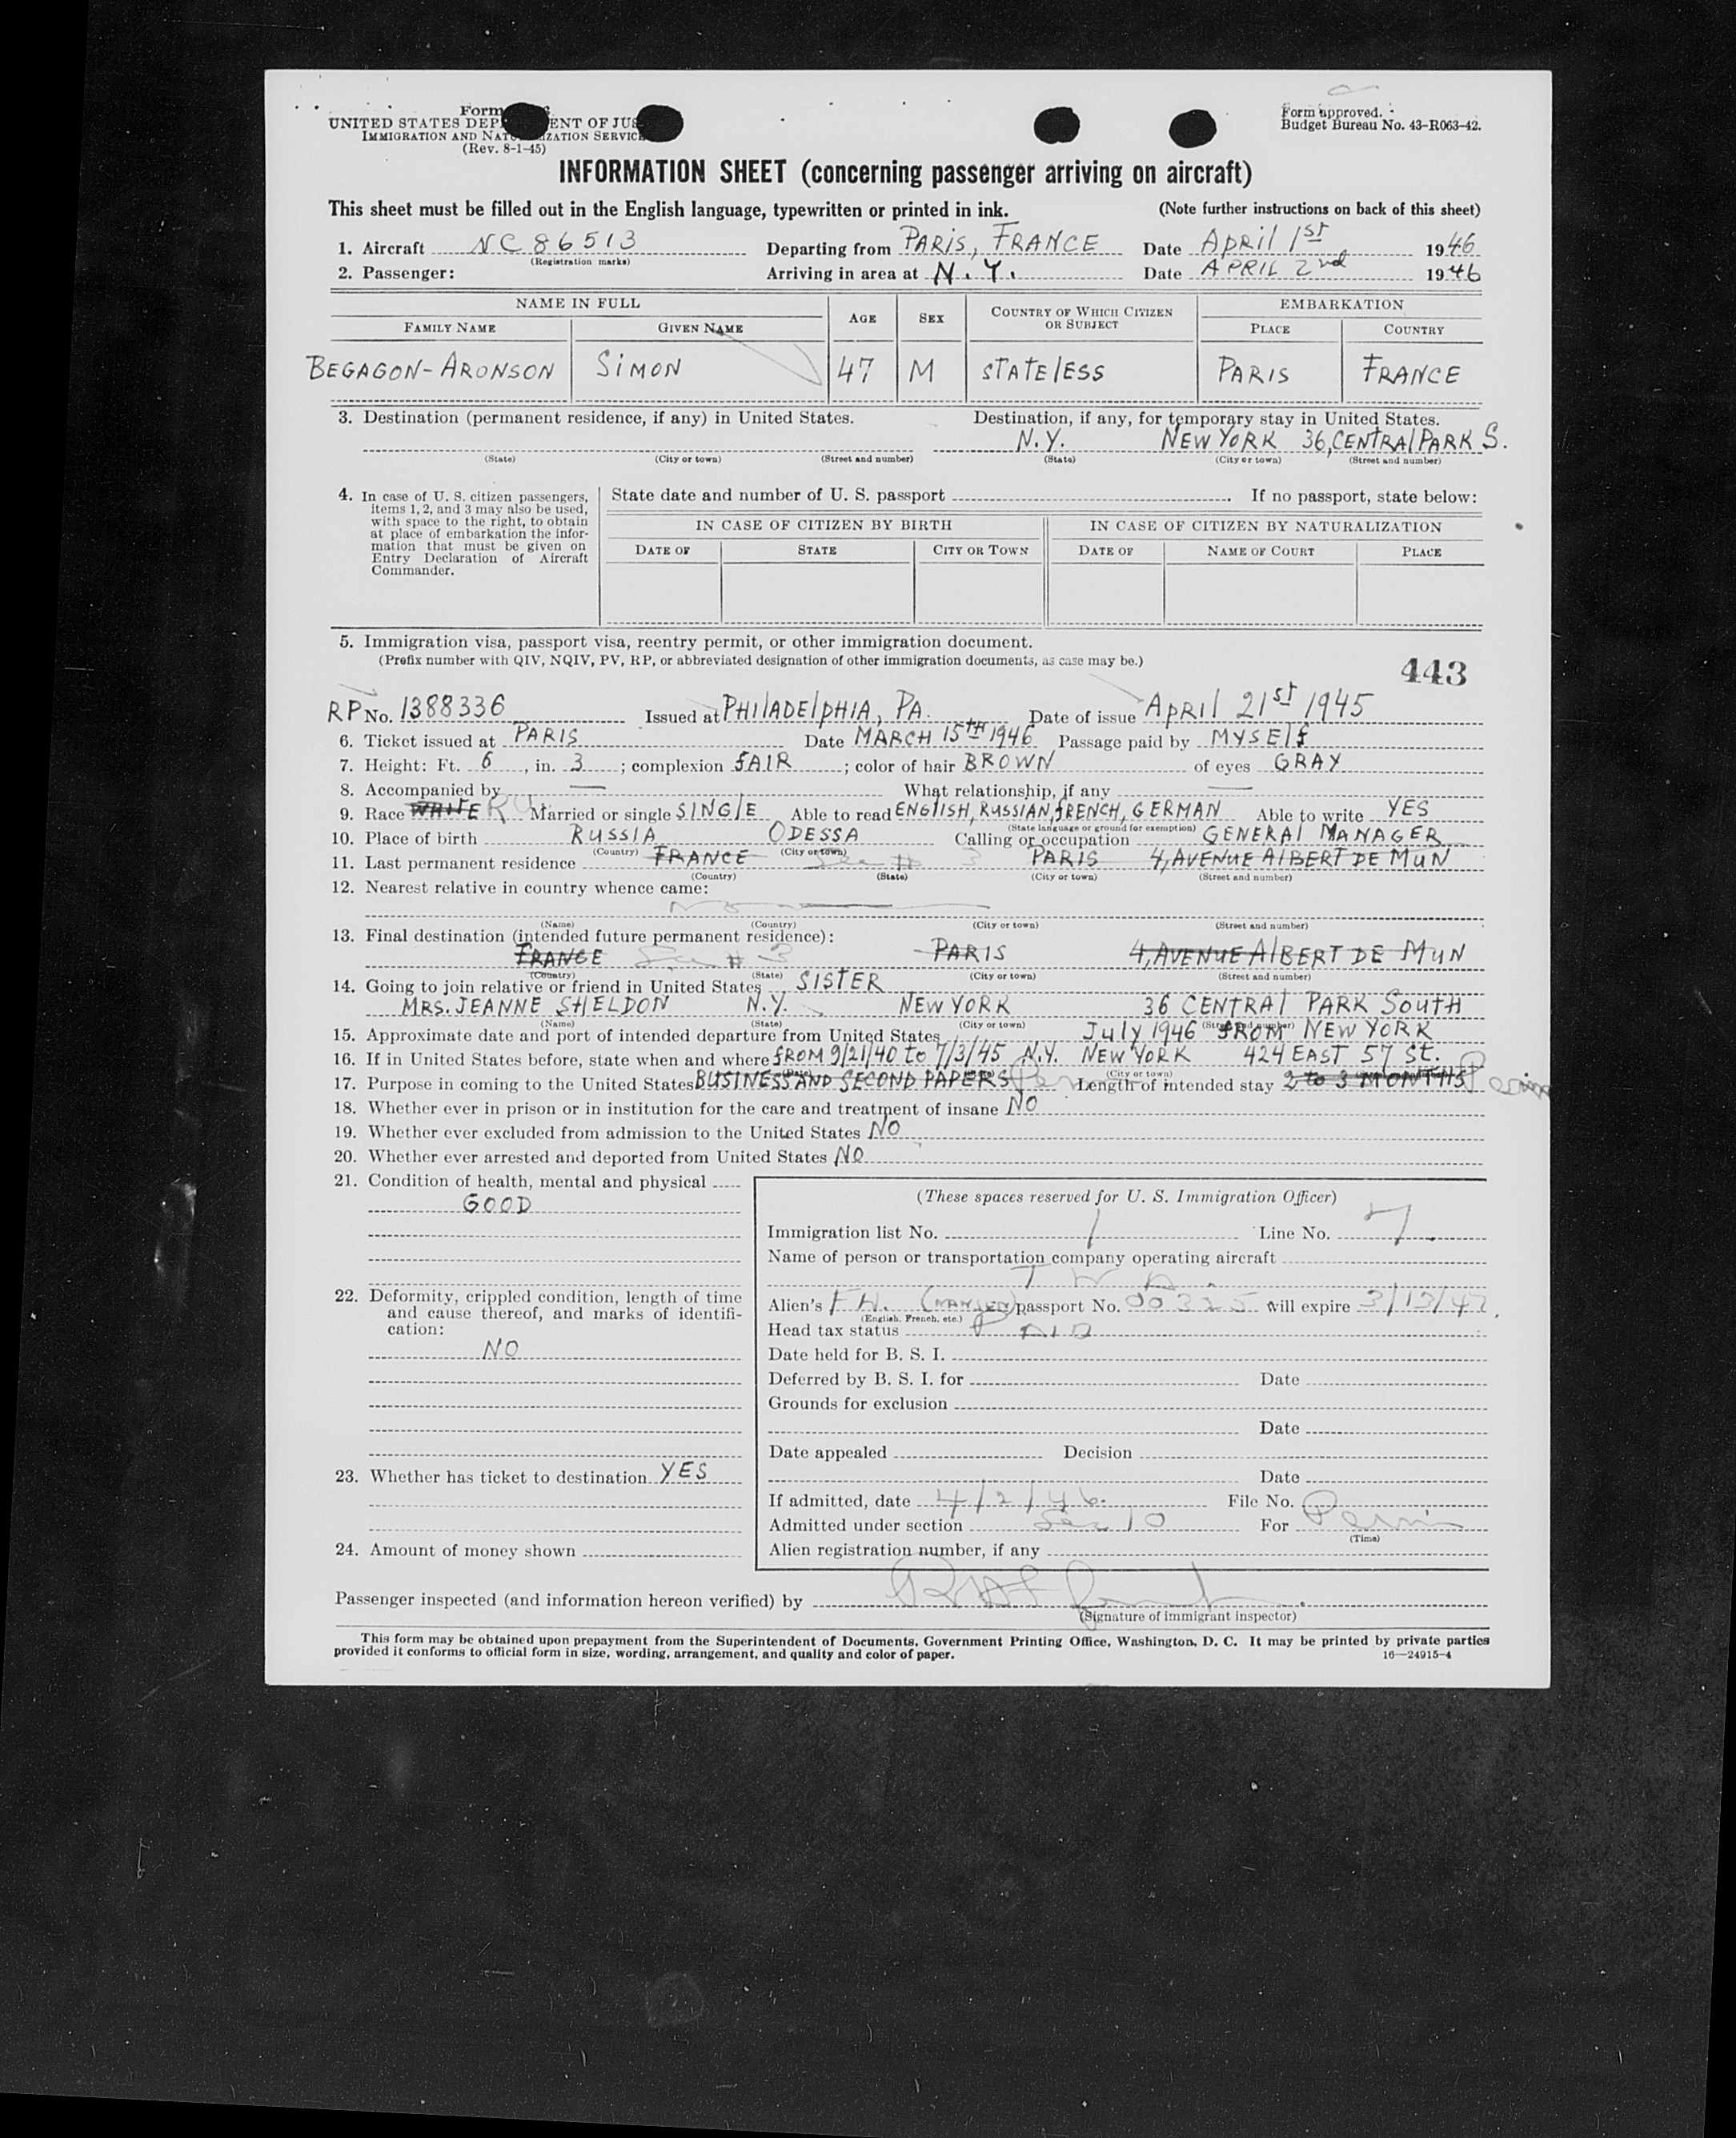 Form
UNITED STATES DEP ENT OF JUS
IMMIGRATION AND NATU IZATION SERVICE
(Rev. 8-1-45)
Form approved.
Budget Bureau No. 43-R063-42.
INFORMATION SHEET (concerning passenger arriving on aircraft)
This sheet must be filled out in the English language, typewritten or printed in ink. (Note further instructions on back of this sheet)
1. Aircraft NC 86513 Departing from PARIS, FRANCE Date April 1st 1946
(Registration marks)
2. Passenger: Arriving in area at N. Y. Date APRIL 2nd 1946
NAME IN FULL AGE SEX COUNTRY OF WHICH CITIZEN OR SUBJECT EMBARKATION
FAMILY NAME GIVEN NAME PLACE COUNTRY
BEGAGON-ARONSON SIMON 47 M STATELESS PARIS FRANCE
3. Destination (permanent residence, if any) in United States. Destination, if any, for temporary stay in United States.
N.Y. NEW YORK 36, CENTRAL PARK S.
(State) (City or town) (Street and number) (State) (City or town) (Street and number)
4. In case of U. S. citizen passengers, items 1, 2, and 3 may also be used, with space to the right, to obtain at place of embarkation the information that must be given on Entry Declaration of Aircraft Commander.
State date and number of U. S. passport . If no passport, state below:
IN CASE OF CITIZEN BY BIRTH IN CASE OF CITIZEN BY NATURALIZATION
DATE OF STATE CITY OR TOWN DATE OF NAME OF COURT PLACE
5. Immigration visa, passport visa, reentry permit, or other immigration document.
(Prefix number with QIV, NQIV, PV, RP, or abbreviated designation of other immigration documents, as case may be.)
443
RP No. 1388336 Issued at PHILADELPHIA, PA. Date of issue April 21st 1945
6. Ticket issued at PARIS Date MARCH 15TH 1946 Passage paid by MYSELF
7. Height: Ft. 6, in. 3; complexion FAIR; color of hair BROWN of eyes GRAY
8. Accompanied by — What relationship, if any —
9. Race WHITE RU Married or single SINGLE Able to read ENGLISH, RUSSIAN, FRENCH, GERMAN Able to write YES
(State language or ground for exemption)
10. Place of birth RUSSIA ODESSA Calling or occupation GENERAL MANAGER
(Country) (City or town)
11. Last permanent residence FRANCE See # 3 PARIS 4, AVENUE ALBERT DE MUN
(Country) (State) (City or town) (Street and number)
12. Nearest relative in country whence came:
(Name) (Country) (City or town) (Street and number)
13. Final destination (intended future permanent residence):
FRANCE See # 3 PARIS 4, AVENUE ALBERT DE MUN
(Country) (State) (City or town) (Street and number)
14. Going to join relative or friend in United States SISTER
MRS. JEANNE SHELDON N.Y. NEW YORK 36 CENTRAL PARK SOUTH
(Name) (State) (City or town) (Street and number)
15. Approximate date and port of intended departure from United States July 1946 FROM NEW YORK
16. If in United States before, state when and where FROM 9/21/40 to 7/3/45 N.Y. NEW YORK 424 EAST 57 St.
(City or town)
17. Purpose in coming to the United States BUSINESS AND SECOND PAPERS Length of intended stay 2 to 3 MONTHS
18. Whether ever in prison or in institution for the care and treatment of insane NO
19. Whether ever excluded from admission to the United States NO
20. Whether ever arrested and deported from United States NO
21. Condition of health, mental and physical
GOOD
22. Deformity, crippled condition, length of time and cause thereof, and marks of identification:
NO
23. Whether has ticket to destination YES
24. Amount of money shown
(These spaces reserved for U. S. Immigration Officer)
Immigration list No. 1 Line No. 7
Name of person or transportation company operating aircraft
T W A.
Alien's (NANSEN) passport No. 00325 will expire 3/13/47
(English, French, etc.)
Head tax status PAID
Date held for B. S. I.
Deferred by B. S. I. for Date
Grounds for exclusion
Date
Date appealed Decision
Date
If admitted, date 4/2/46. File No.
Admitted under section Sec 10 For
(Time)
Alien registration number, if any
Passenger inspected (and information hereon verified) by
(Signature of immigrant inspector)
This form may be obtained upon prepayment from the Superintendent of Documents, Government Printing Office, Washington, D. C. It may be printed by private parties
provided it conforms to official form in size, wording, arrangement, and quality and color of paper. 16—24915-4